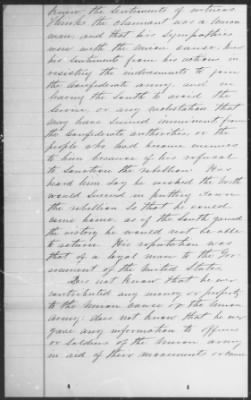 Knew the sentiments of witness
Thinks the claimant was a Union
man, and that his sympathies
were with the Union cause, has
his sentiments from his actions in
resisting the inducements to join
the Confederate army, and in
leaving the South to avoid the
service, or any molestation that
may have seemed imminent from
the Confederate authorities, or the
people who had become enemies
to him because of his refusal
to sanction the rebellion. Has
heard him say he wished the North
would succeed in putting down
the rebellion so that he could
come home, as if the South gained
the victory he would not be able
to return. His reputation was
that of a loyal man to the Gov-
ernment of the United States.
Does not know that he ever
contributed any money or property
to the Union cause or the Union
army: does not know that he ever
gave any information to officers
or soldiers of the Union army
in aid of their movements or